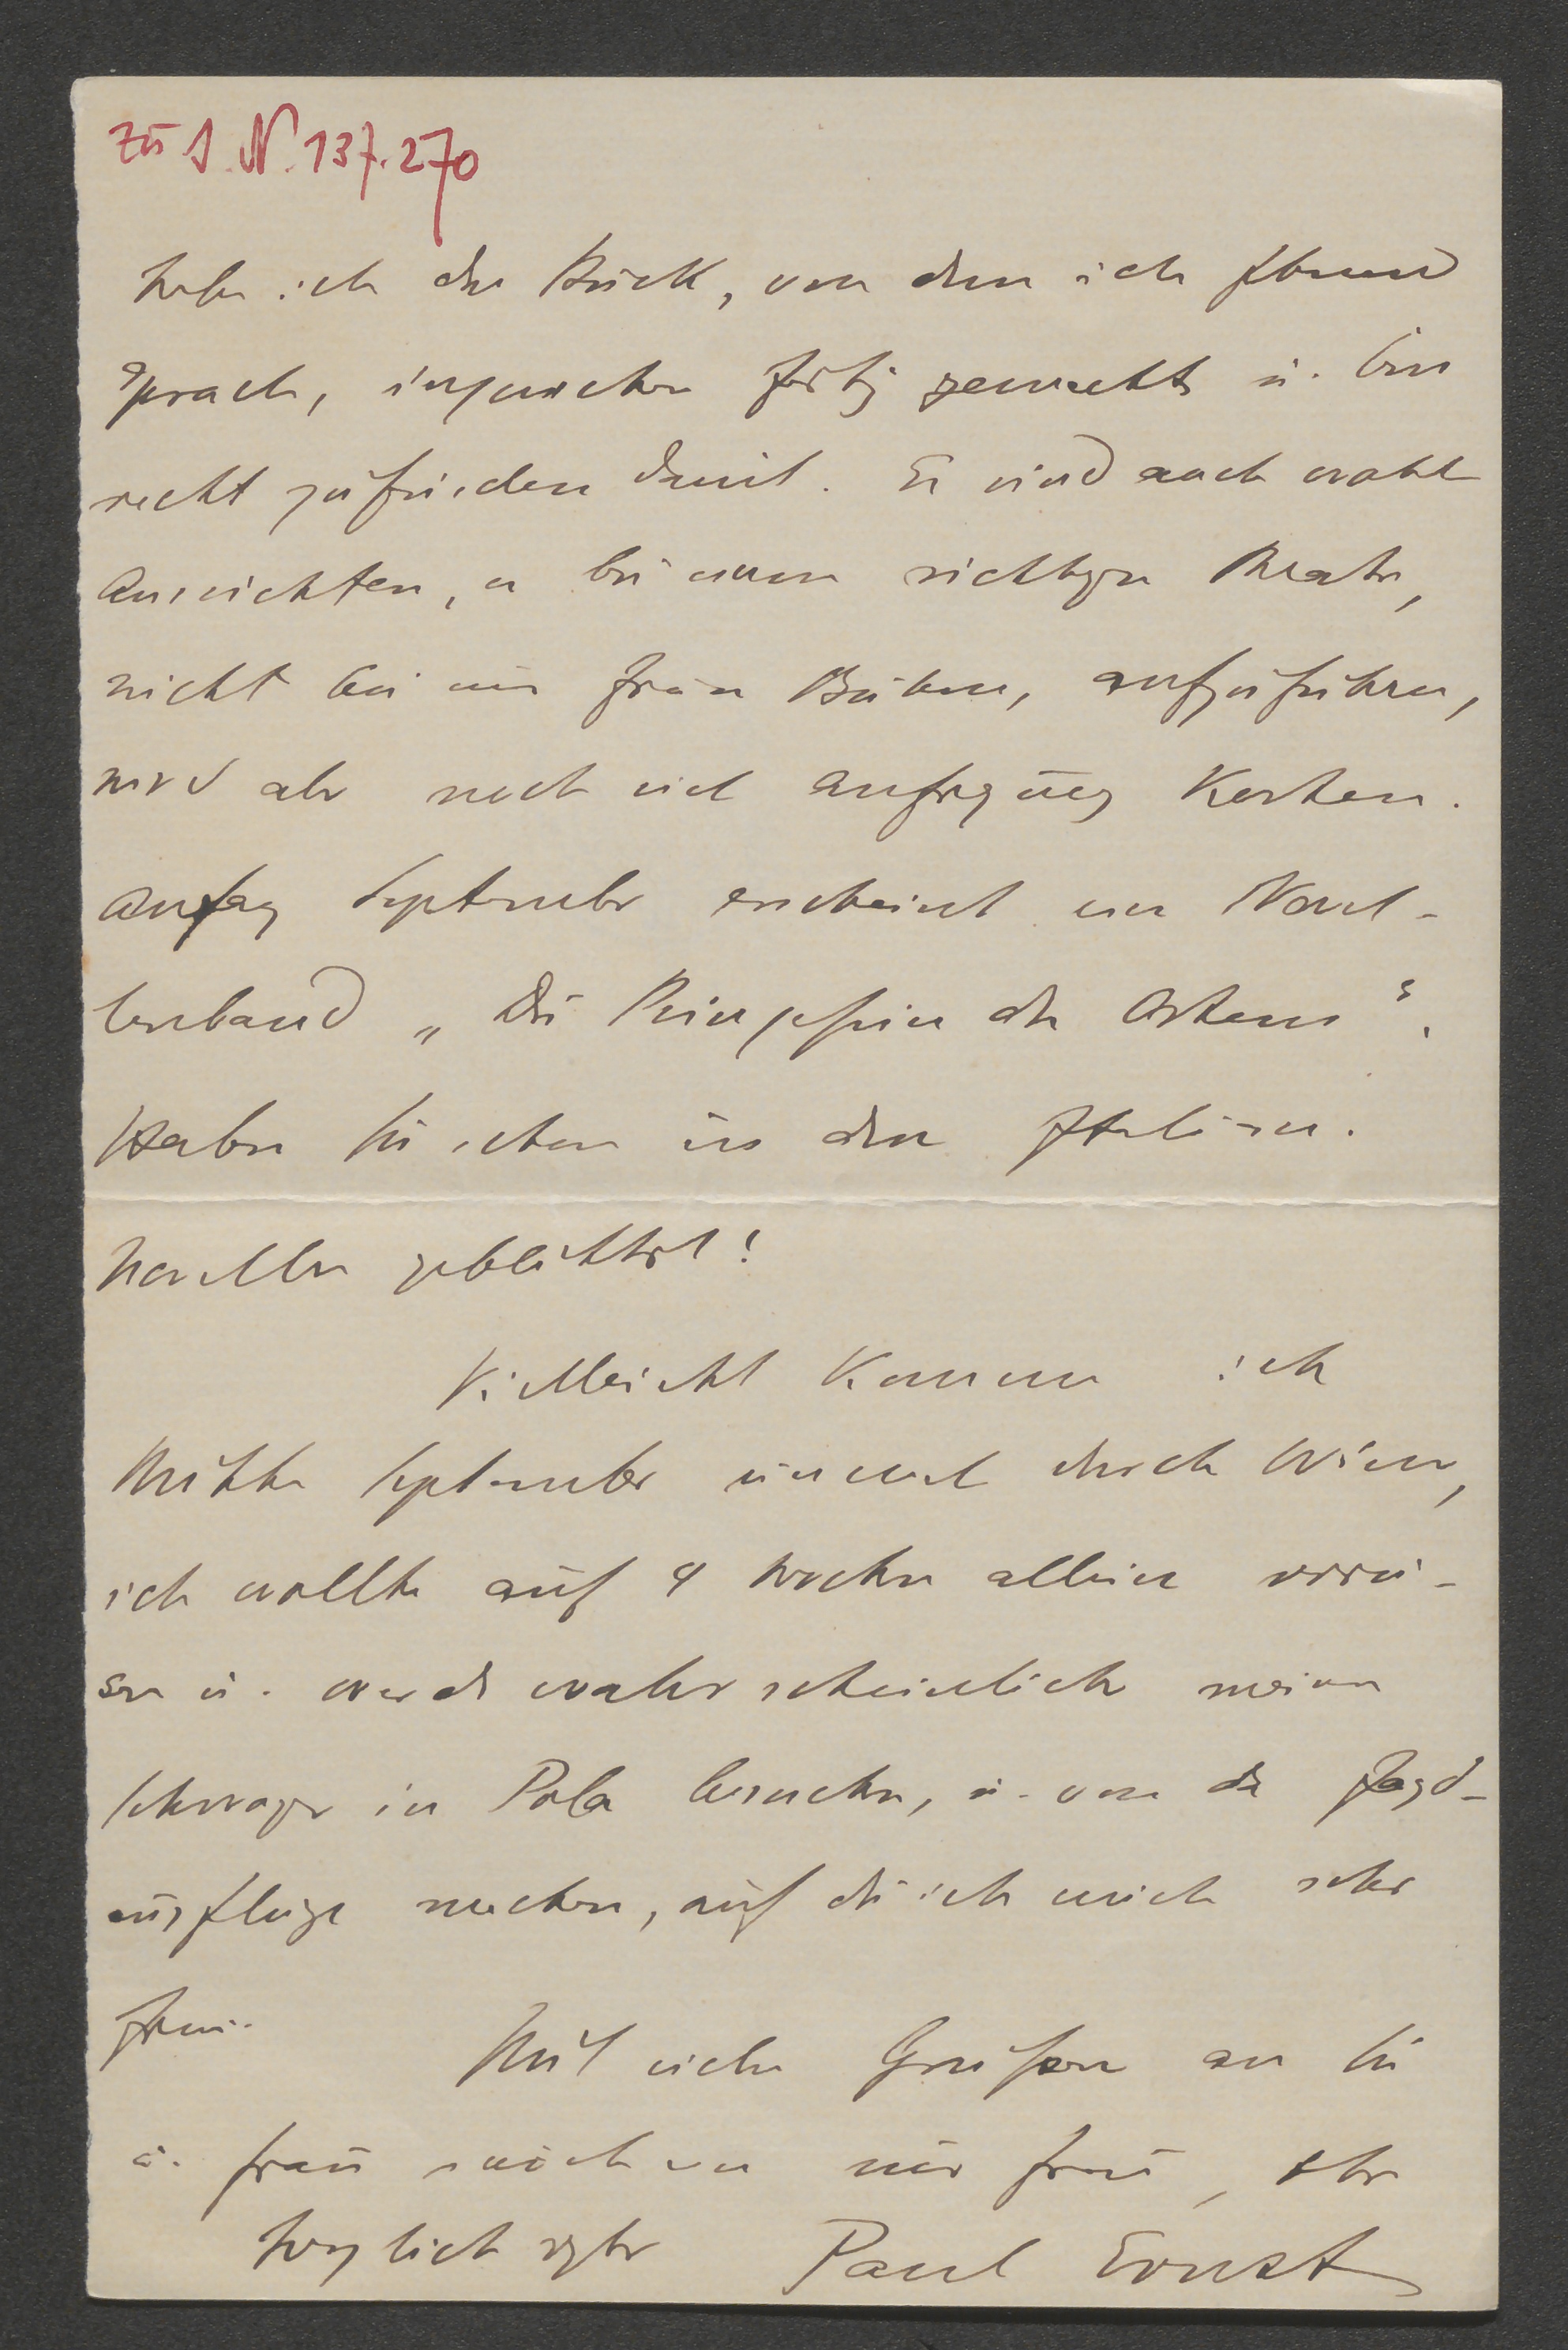 Zu I. N. 137.270
habe ich das Stück, von dem ich Ihnen
sprach, inzwischen fertig gemacht u. bin
recht zufrieden damit. Es sind auch wohl
Aussichten, es bei einem richtigen Theater,
nicht bei einer freien Bühne, aufzuführen,
wird aber noch viel Aufregung kosten.
Anfang September erscheint ein Novel-
lenband „Die Prinzessin des Ostens“.
Haben Sie schon in den Italien.
Novellen geblättert?
Vielleicht komme ich
Mitte September einmal durch Wien,
ich wollte auf 4 Wochen allein verrei-
sen u. werde wahrscheinlich meinen
Schwager in Pola besuchen, u. von da Jagd-
ausflüge machen, auf die ich mich sehr
freue.
Mit vielen Grüßen an Sie
u. Frau von mir u. Frau, Ihr
herzlich ergebener Paul Ernst